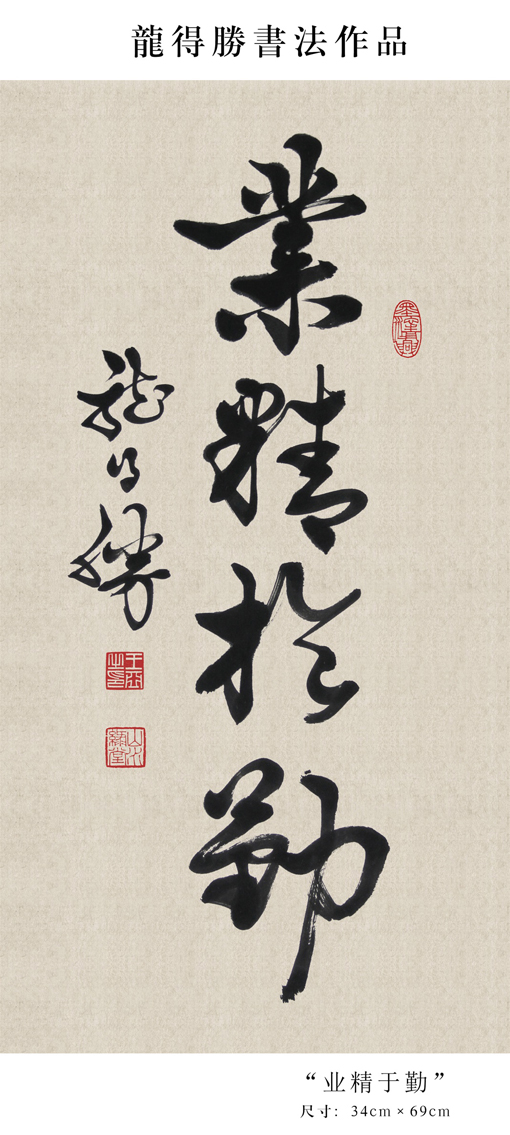 龍得勝書法作品
業精於勤
龍得勝
“业精于勤”
尺寸：34cm×69cm